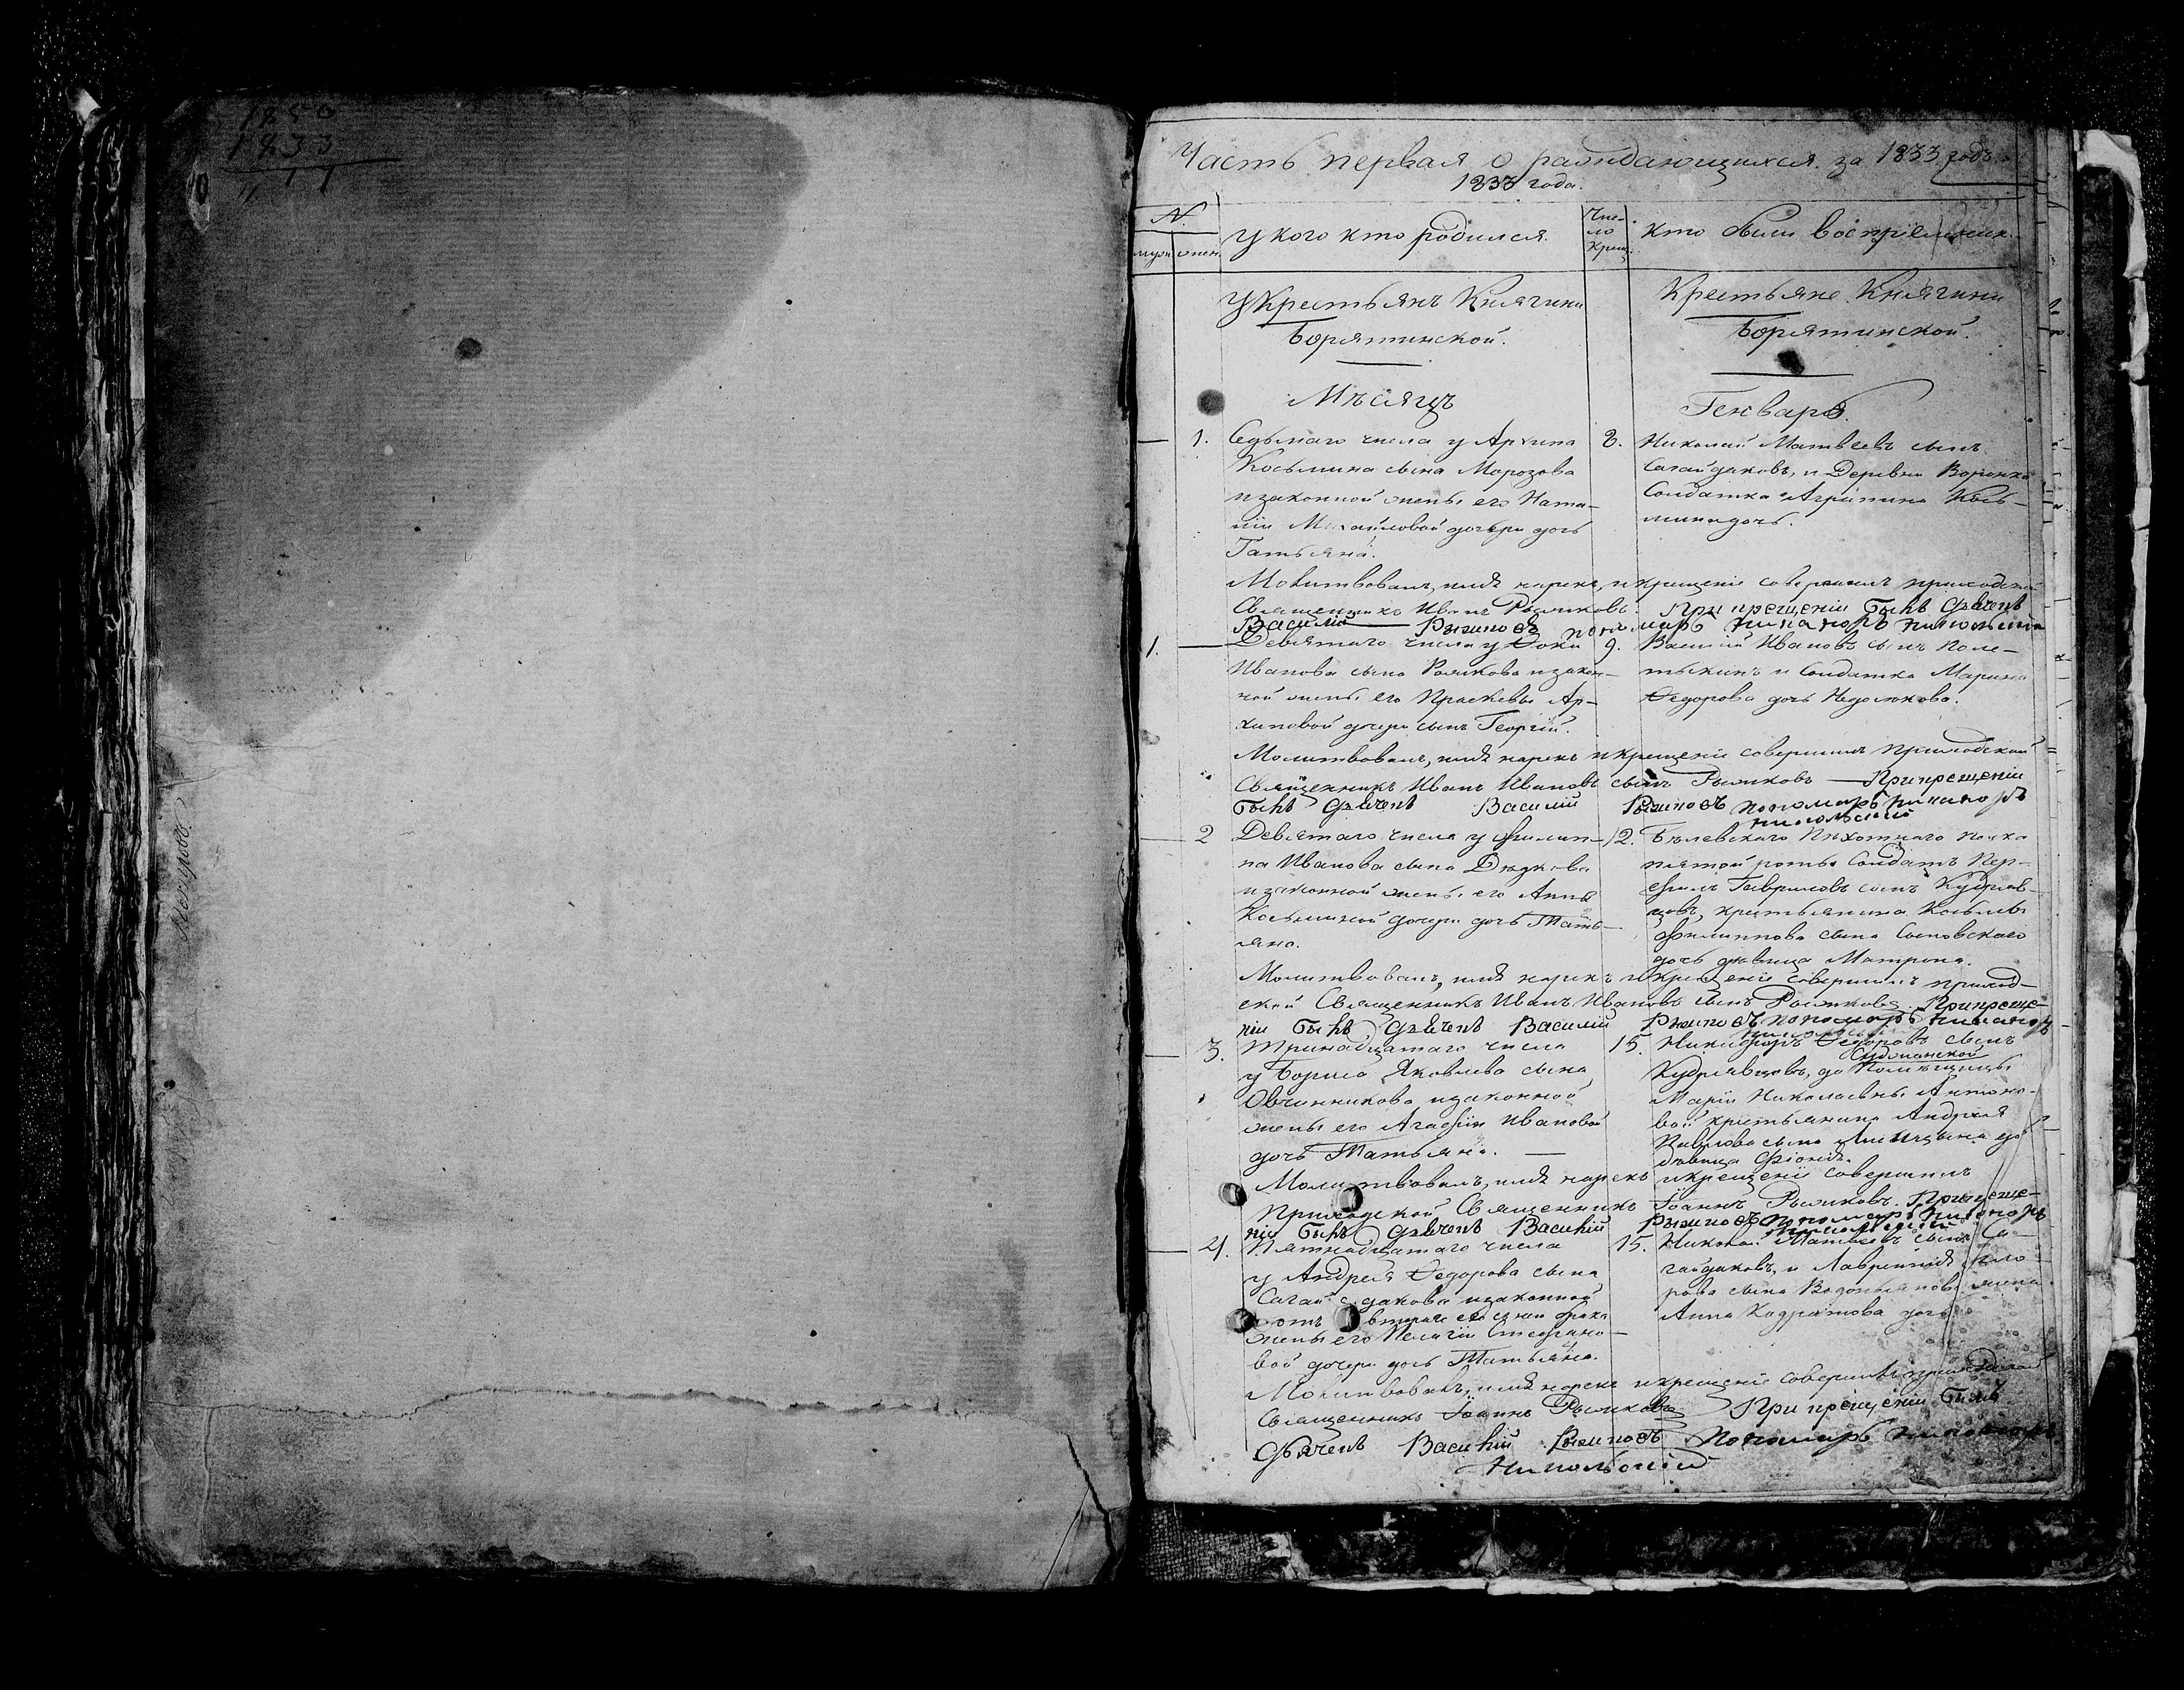 1850
1833
Часть первая о раждающихся за 1833 годъ.
1833 года.
№
муж. жен.
У кого кто родился.
Число крещ.
Кто были воспріемник.
У Крестьянъ Княгини
Борятинской.
Крестьяне Княгини
Борятинской.
Мѣсяцъ
Генварь.
1.
Седьмаго числа у Архипа
Косьмина сына Морозова
и законной жены его Ната-
ліи Михайловой дочери дочь
Татьяна.
8.
Николай Матвеевъ сынъ
Сагайдаковъ, и Деревни Воронка
Солдатка Агрипина Кось-
мина дочь.
Молитвовалъ, имя нарекъ, и крещеніе совершилъ приходской
Священникъ Иванъ Рыжковъ. При крещеніи былъ дьячекъ
Василій Рыжковъ пономарь Никаноръ Никольскій
1.
Девятаго числа у Фоки
Иванова сына Рыжкова и закон-
ной жены его Прасковьи Ар-
хиповой дочери сынъ Георгій.
9.
Василій Ивановъ сынъ Поле-
тыкинъ и Солдатка Марина
Федорова дочь
Молитвовалъ, имя нарекъ и крещеніе совершилъ Приходской
Священникъ Иванъ Ивановъ сынъ Рыжковъ — При крещеніи
былъ дьячекъ Василій Рыжковъ пономарь Никаноръ
Никольскій
2
Девятаго числа у Филип-
па Иванова сына Дюдкова
и законной жены его Анны
Косьминой дочери дочь Тать-
яна.
12.
Бѣлевскаго Пѣхотнаго полка
пятой роты Солдатъ Пер-
филъ Гавриловъ сынъ Кудряв-
цовъ, крестьянина Косьмы
Филиппова сына Сыповскаго
дочь девица Матрона.
Молитвовалъ, имя нарекъ и крещеніе совершилъ приход-
ской Священникъ Иванъ Ивановъ сынъ Рыжковъ. При креще-
ніи былъ дьячекъ Василій Рыжковъ пономарь Никаноръ
Никольскій
3.
Тринадцатаго числа
у Бориса Яковлева сына
Овчинникова и законной
жены его Агафіи Ивановой
дочь Татьяна. —
15.
Никифоръ Федоровъ сынъ
Кудрявцовъ, да Помѣщицы
Маріи Николаевны Антоно-
вой крестьянина Андрея
Павлова сына
дѣвица
Молитвовалъ, имя нарекъ и крещеніе совершилъ
Приходской Священникъ Іоаннъ Рыжковъ. При креще-
ніи былъ дьячекъ Василій Рыжковъ пономарь Никаноръ
Никольскій
4.
Пятнадцатаго числа
у Андрея Федорова сына
Сагайдакова и законной
отъ втораго брака
жены его Пелагіи Стефано-
вой дочери дочь Татьяна.
15.
Николай Матвеевъ сынъ Са-
гайдаковъ, и Лаврентія
сына жена
Анна Кодратова дочь
Молитвовалъ, имя нарекъ и крещеніе совершилъ приходской
Священникъ Іоаннъ Рыжковъ При крещеніи былъ
Дьячекъ Василій Рыжковъ Пономарь Никаноръ
Никольскій